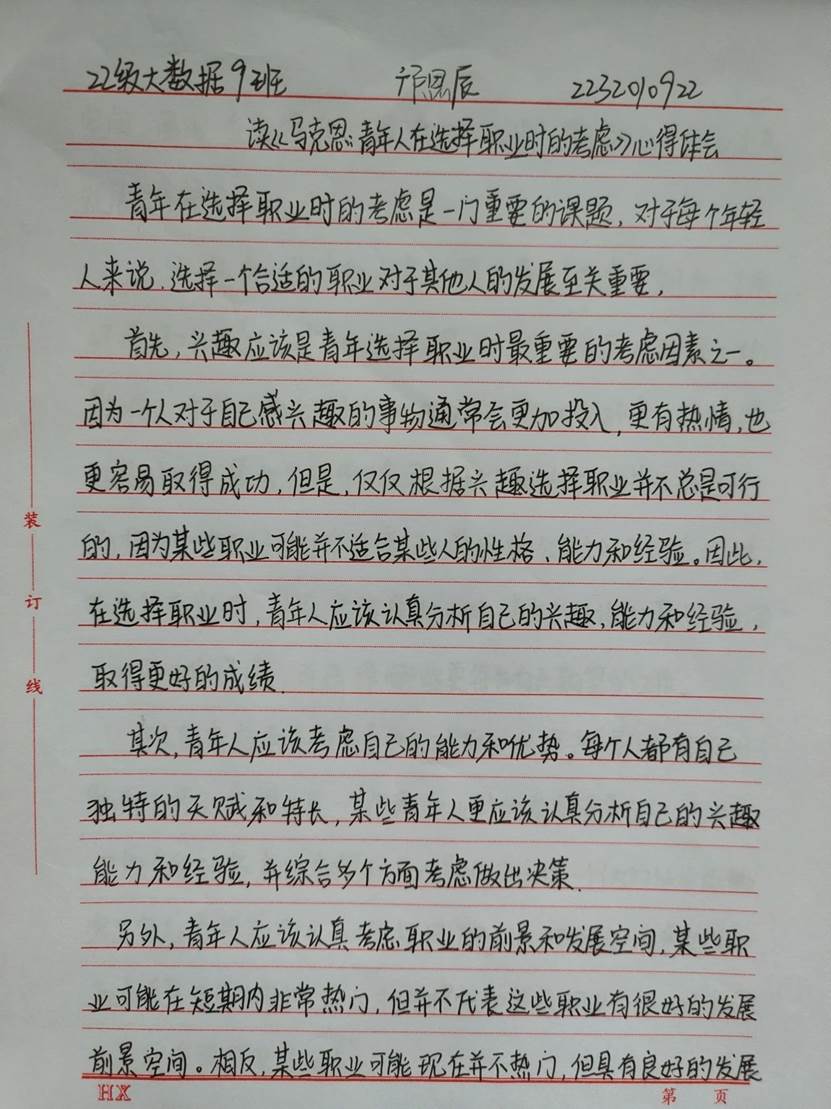 22级大数据9班 祁恩辰 2232010922
读《马克思:青年人在选择职业时的考虑》心得体会
青年在选择职业时的考虑是一门重要的课题,对于每个年轻
人来说,选择一个合适的职业对于其他人的发展至关重要,
首先,兴趣应该是青年选择职业时最重要的考虑因素之一。
因为一个人对于自己感兴趣的事物通常会更加投入,更有热情,也
更容易取得成功,但是,仅仅根据兴趣选择职业并不总是可行
的,因为某些职业可能并不适合某些人的性格、能力和经验。因此,
在选择职业时,青年人应该认真分析自己的兴趣,能力和经验,
取得更好的成绩.
其次,青年人应该考虑自己的能力和优势。每个人都有自己
独特的天赋和特长,某些青年人更应该认真分析自己的兴趣
能力和经验,并综合多个方面考虑做出决策.
另外,青年人应该认真考虑职业的前景和发展空间,某些职
业可能在短期内非常热门,但并不代表这些职业有很好的发展
前景空间。相反,某些职业可能现在并不热门,但具有良好的发展
装
订
线
HX
第 页